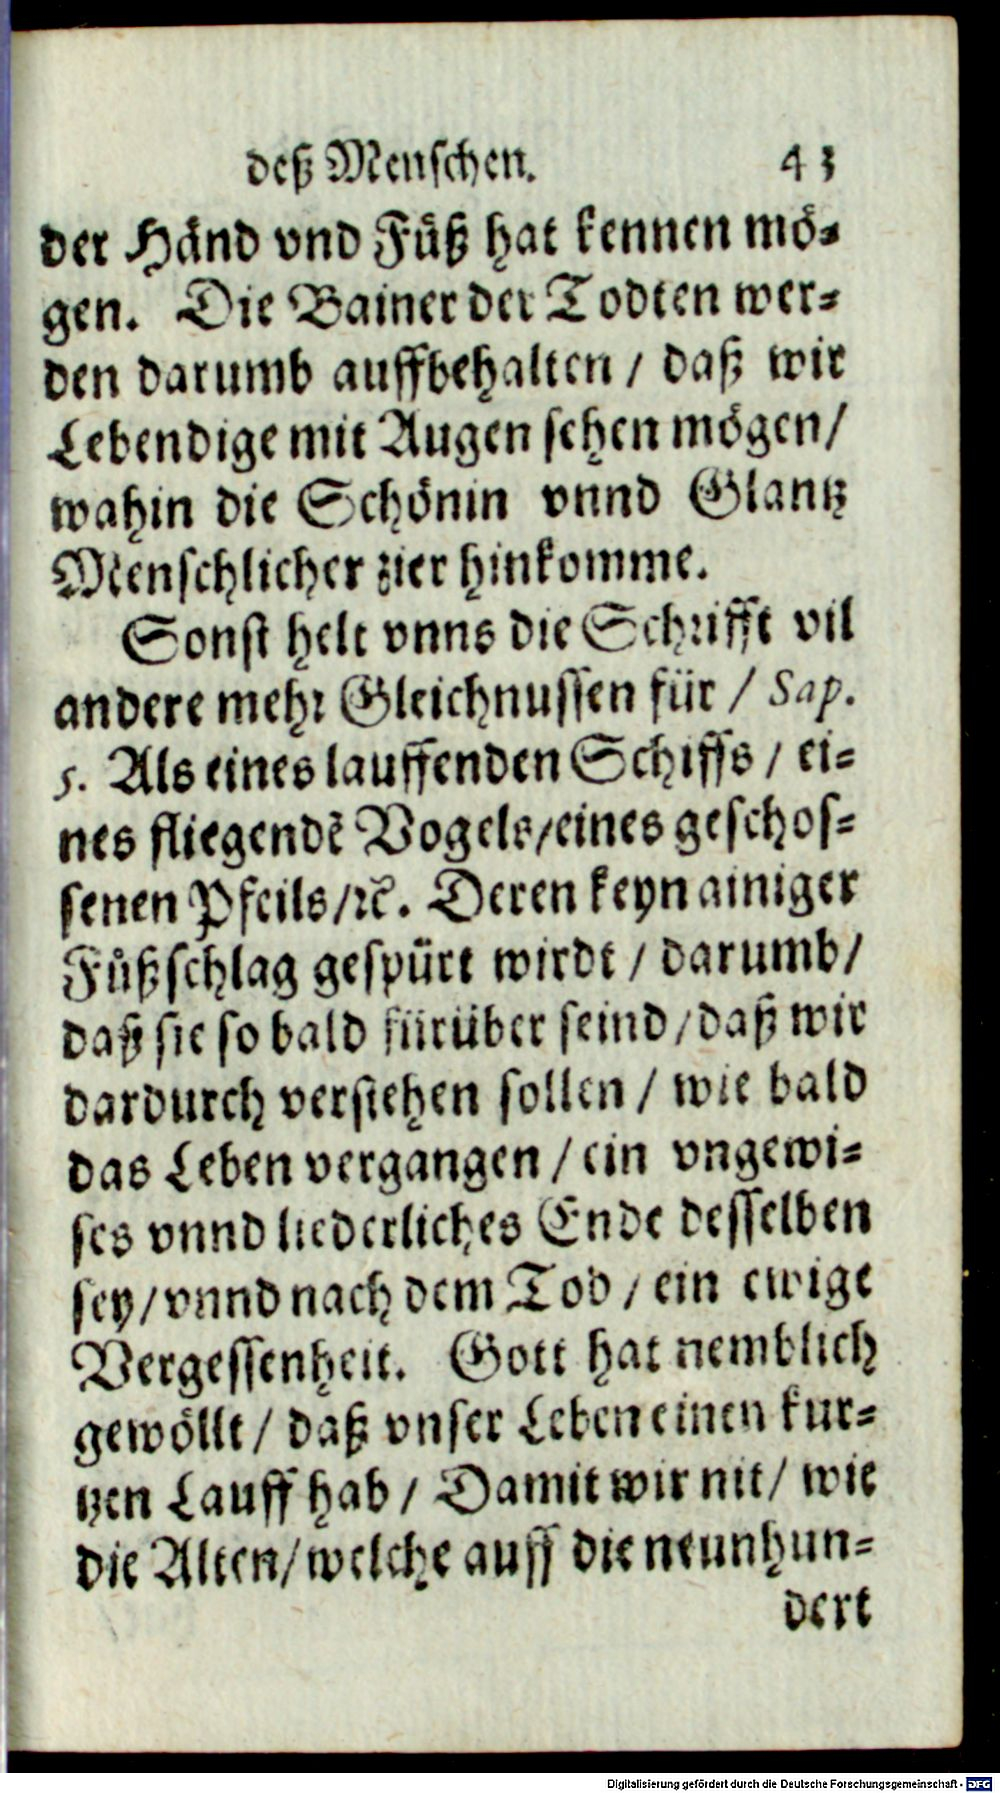 deß Menschen. 43
der Händ vnd Füß hat kennen mö-
gen. Die Bainer der Todten wer-
den darumb auffbehalten / daß wir
Lebendige mit Augen sehen mögen/
wahin die Schönin vnnd Glantz
Menschlicher zier hinkomme.
Sonst helt vnns die Schrifft vil
andere mehr Gleichnussen für / Sap.
5. Als eines lauffenden Schiffs / ei-
nes fliegendē Vogels/eines geschos-
senen Pfeils/ꝛc̃. Deren keyn ainiger
Füßschlag gespürt wirdt / darumb/
daß sie so bald fürüber seind/daß wir
dardurch verstehen sollen / wie bald
das Leben vergangen / ein vngewi-
ses vnnd liederliches Ende desselben
sey/vnnd nach dem Tod / ein ewige
Vergessenheit. Gott hat nemblich
gewöllt / daß vnser Leben einen kur-
tzen Lauff hab / Damit wir nit/ wie
die Alten/welche auff die neunhun-
dert
Digitalisierung gefördert durch die Deutsche Forschungsgemeinschaft - DFG